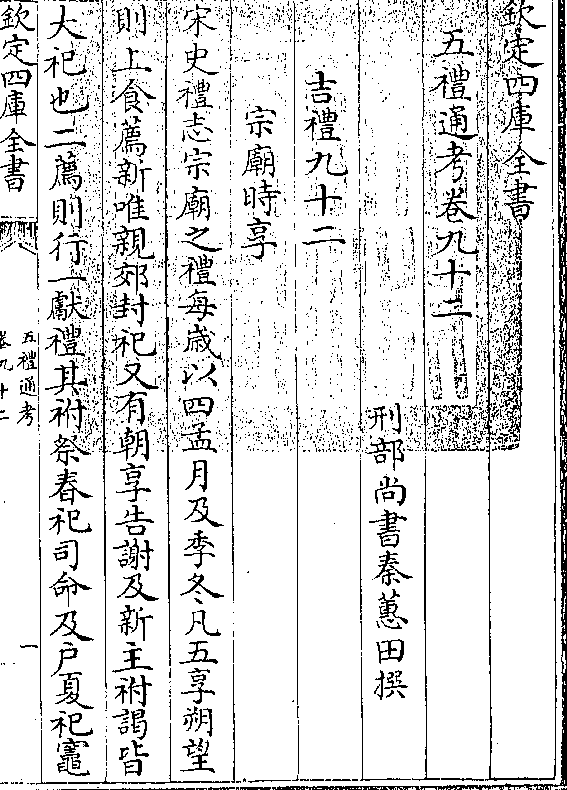 欽定四庫全書
五禮通考卷九十二
刑部尚書秦蕙田撰
吉禮九十二
宗廟時享
宋史禮志宗廟之禮每歲以四孟月及季冬凡五享朔望
則上食薦新唯親郊封祀又有朝享告謝及新主祔謁皆
大祀也二薦則行一獻禮其祔祭春祀司命及戶夏祀竈
欽定四庫全書
五禮通考
卷九十二
一